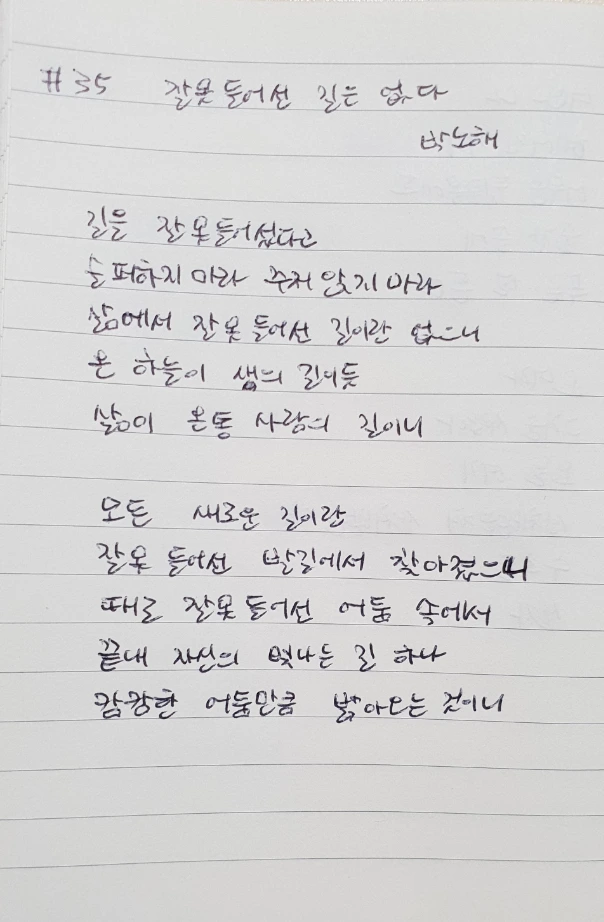 #35 잘못 들어선 길은 없다
박노해
길을 잘못 들어섰다고
슬퍼하지 마라 주저 앉지 마라
삶에서 잘못 들어선 길이란 없으니
온 하늘이 새의 길이듯
삶이 온통 사람의 길이니
모든 새로운 길이란
잘못 들어선 발길에서 찾아졌으니
때로 잘못 들어선 어둠 속에서
끝내 자신의 빛나는 길 하나
캄캄한 어둠만큼 밝아오는 것이니